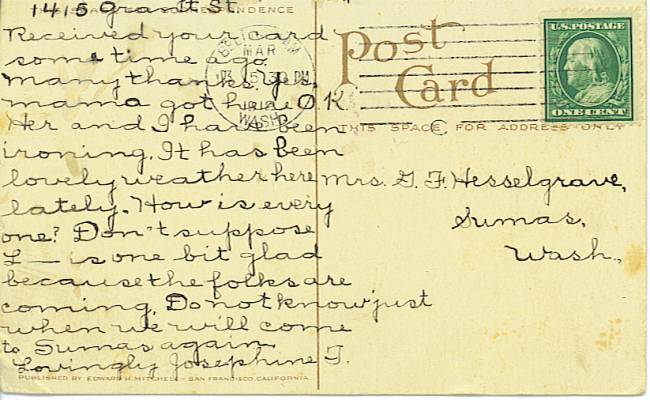 1415 Grant St.
THIS SPACE FOR CORRESPONDENCE
Received your card
some time ago.
Many thanks. Yes,
mama got here O.K.
Her and I have been
ironing. It has been
lovely weather here
lately. How is every
one? Don't suppose
L— is one bit glad
because the folks are
coming. Do not know just
when we will come
to Sumas again.
Lovingly Josephine T.
PUBLISHED BY EDWARD H. MITCHELL - SAN FRANCISCO, CALIFORNIA
MAR
1912
WASH.
U.S. POSTAGE
ONE CENT
Post
Card
THIS SPACE FOR ADDRESS ONLY
Mrs. G. F. Hesselgrave,
Sumas,
Wash.,